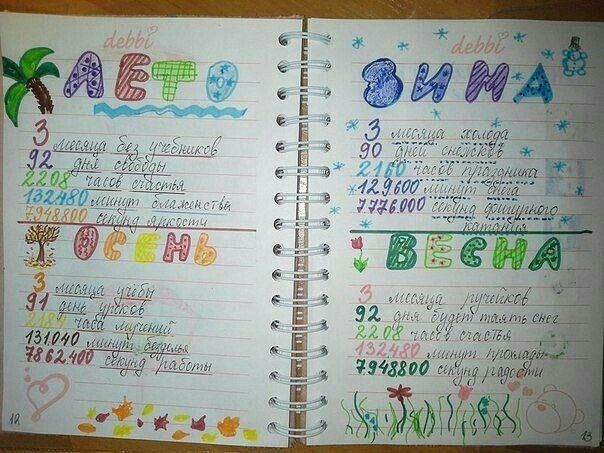 debbi
ЛЕТО
3 месяца без учебников
92 дня свободы
2208 часов счастья
132480 минут блаженства
7948800 секунд яркости
ОСЕНЬ
3 месяца учёбы
91 день уроков
2184 часа мучений
131040 минут безделья
7862400 секунд работы
12
debbi
ЗИМА
3 месяца холода
90 дней снежков
2160 часов праздника
129600 минут снега
7776000 секунд фигурного
катанья
ВЕСНА
3 месяца ручейков
92 дня будет таять снег
2208 часов счастья
132480 минут прохлады
7948800 секунд радости
13